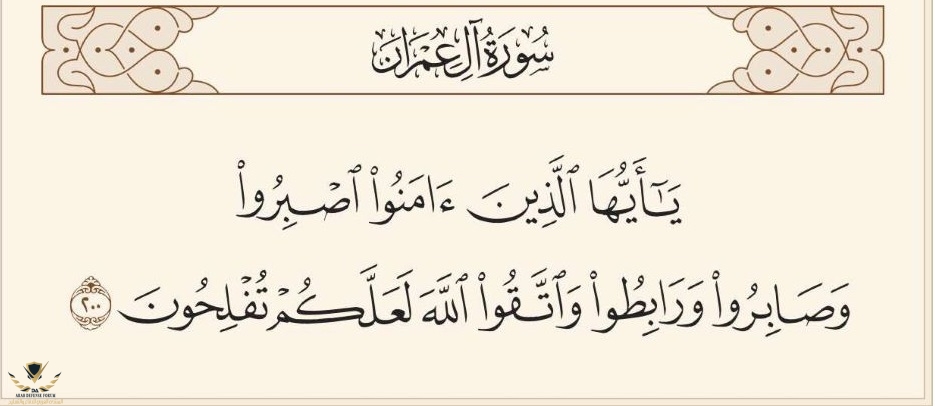 سُورَةُ آلِ عِمْرَانَ
يَـٰٓأَيُّهَا ٱلَّذِينَ ءَامَنُوا۟ ٱصْبِرُوا۟
وَصَابِرُوا۟ وَرَابِطُوا۟ وَٱتَّقُوا۟ ٱللَّهَ لَعَلَّكُمْ تُفْلِحُونَ ٢٠٠
ARAB DEFENSE FORUM